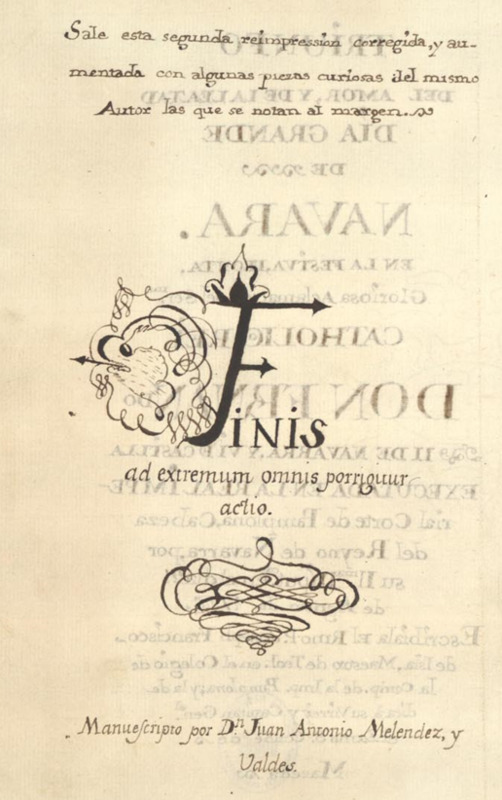 Sale esta segunda reimpression corregida, y au-
mentada con algunas piezas curiosas del mismo
Autor las que se notan al margen.
Finis
ad extremum omnis porrigitur
actio.
Manuescripto por D.n Juan Antonio Melendez, y
Valdes.